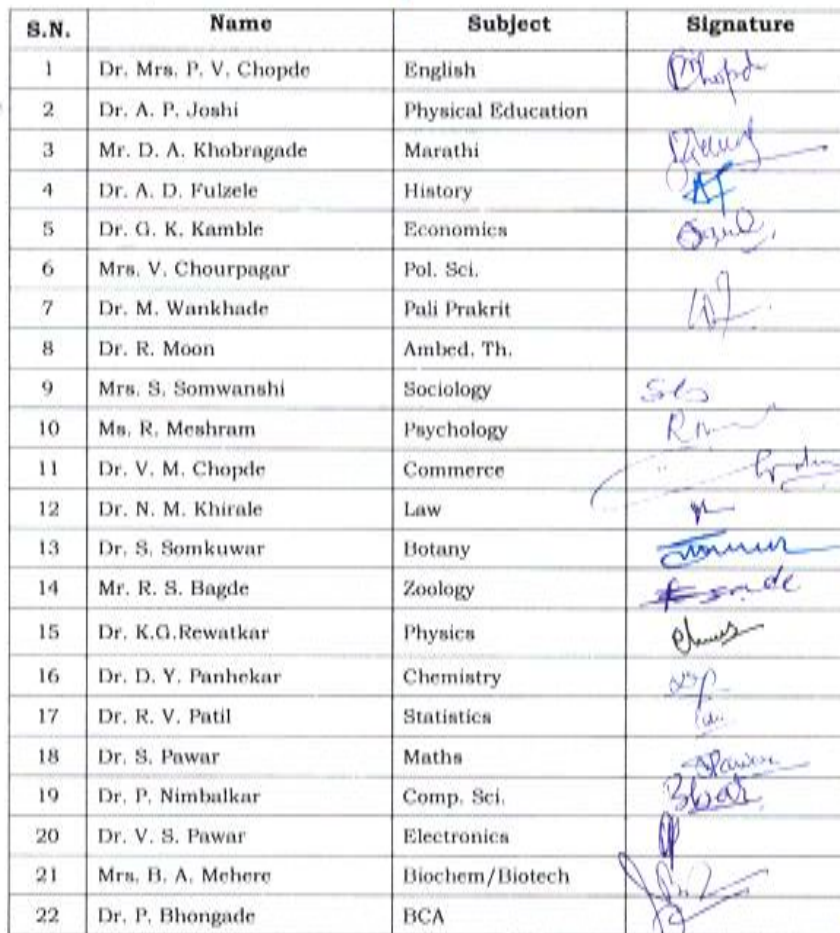 S.N. Name Subject Signature
1 Dr. Mrs. P. V. Chopde English
2 Dr. A. P. Joshi Physical Education
3 Mr. D. A. Khobragade Marathi
4 Dr. A. D. Fulzele History
5 Dr. G. K. Kamble Economics
6 Mrs. V. Chourpagar Pol. Sci.
7 Dr. M. Wankhade Pali Prakrit
8 Dr. R. Moon Ambed. Th.
9 Mrs. S. Somwanshi Sociology
10 Ms. R. Meshram Psychology
11 Dr. V. M. Chopde Commerce
12 Dr. N. M. Khirale Law
13 Dr. S. Somkuwar Botany
14 Mr. R. S. Bagde Zoology
15 Dr. K.G.Rewatkar Physics
16 Dr. D. Y. Panhekar Chemistry
17 Dr. R. V. Patil Statistics
18 Dr. S. Pawar Maths
19 Dr. P. Nimbalkar Comp. Sci.
20 Dr. V. S. Pawar Electronics
21 Mrs. B. A. Mehere Biochem/Biotech
22 Dr. P. Bhongade BCA